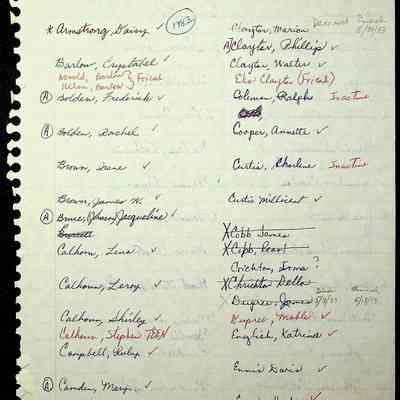 * Armstrong, Daisy ✓
1983
Barlow, Crystabel ✓
Arnold, Barlow } Friend
Helen, Barlow
Ⓐ Bolden, Frederick ✓
Ⓐ Bolden, Rachel ✓
Brown, Irene ✓
Brown, James W. ✓
Ⓐ Bruce, Jacqueline ✓
Calhoun, Lena ✓
Calhoun, Leroy ✓
Calhoun, Shirley ✓
Calhoun, Stephen TEEN
Campbell, Ruby ✓
Ⓐ Camden, Mary ✓
Clayton, Marion
Ⓐ Clayton, Phillip ✓
Clayton, Walter ✓
Clayton (Friend)
Coleman, Ralph Inactive
Cooper, Annette ✓
Curtis, Charlene Inactive
Curtis Millicent ✓
X Cobb James
X Cobb, Pearl
Crichton, Irma ?
X Christia Della
Dupree, James
Dupree, Mable ✓
English, Katrina ✓
Ennis Doris ✓